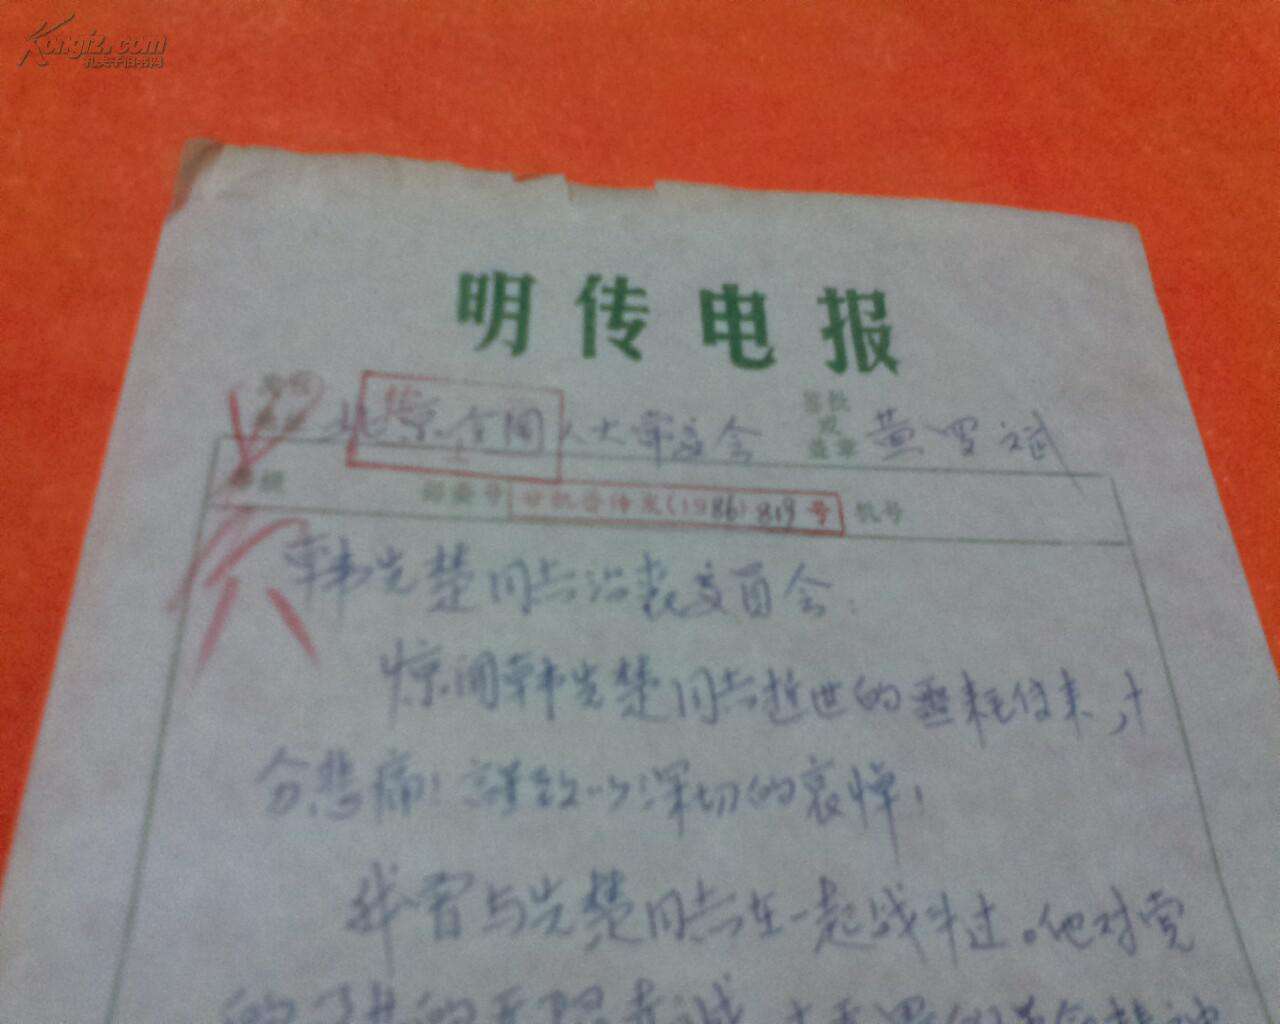 Kongfz.com
孔夫子旧书网
明传电报
北京全国人大常委会 签批盖章 黄罗斌
等级 机发(1986)819号 机号
韩先楚同志治丧委员会:
惊闻韩先楚同志逝世的噩耗传来,十
分悲痛!谨致以深切的哀悼!
我曾与先楚同志在一起战斗过。他对党